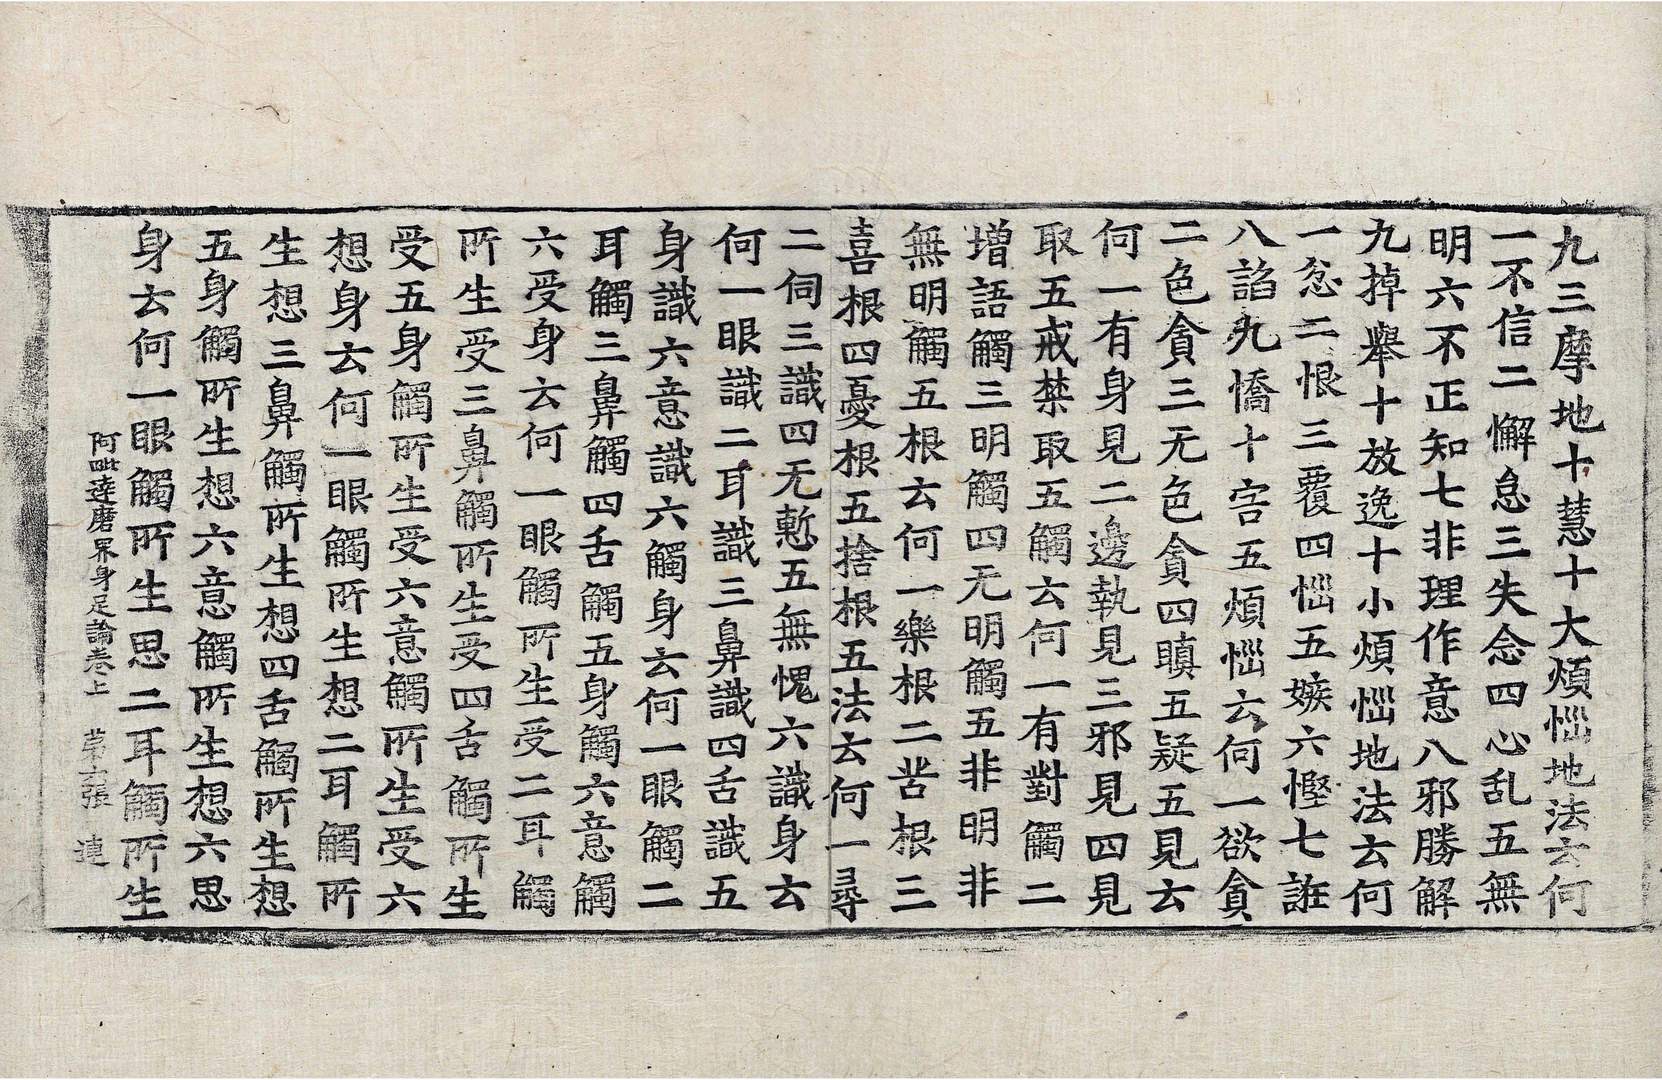 九三摩地十慧十大煩惱地法云何
一不信二懈怠三失念四心乱五無
明六不正知七非理作意八邪勝解
九掉舉十放逸十小煩惱地法云何
一忿二恨三覆四惱五嫉六慳七誑
八諂九憍十害五煩惱云何一欲貪
二色貪三无色貪四瞋五疑五見云
何一有身見二邊執見三邪見四見
取五戒禁取五觸云何一有對觸二
增語觸三明觸四无明觸五非明非
無明觸五根云何一樂根二苦根三
喜根四憂根五捨根五法云何一尋
二伺三識四无慙五無愧六識身云
何一眼識二耳識三鼻識四舌識五
身識六意識六觸身云何一眼觸二
耳觸三鼻觸四舌觸五身觸六意觸
六受身云何一眼觸所生受二耳觸
所生受三鼻觸所生受四舌觸所生
受五身觸所生受六意觸所生受六
想身云何一眼觸所生想二耳觸所
生想三鼻觸所生想四舌觸所生想
五身觸所生想六意觸所生想六思
身云何一眼觸所生思二耳觸所生
阿毗達磨界身足論卷上 苐二張 連